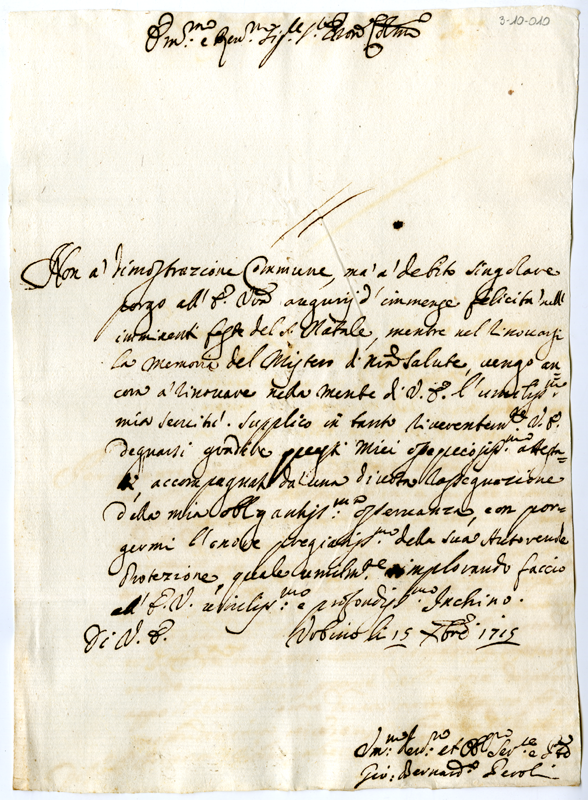 3-10-010
Em.mo e Rev.mo Sig.re Sig.re Pron Col.mo
Non a' dimostrazione Commune, ma' a' debito singolare
porgo all' E. Vra augurij d' immense felicita' nell'
imminenti feste del S. Natale, mentre nel rinovarsi
la memoria del Mistero di nra salute, vengo an
cora a' rinovare nella mente di V. E. l' umiliss.ma
mia servitu'. Supplico in tanto riverentem.te V. E.
degnarsi gradire questi miei ossequiosiss.mi attesta=
ti accompagnati da una divota rassegnazione
della mia obligantiss.ma osservanza, con por=
germi l' onore pregiatiss.mo della sua Autorevole
Protezione, quale umilm.te implorando faccio
all' E. V. umiliss.mo e profondiss.mo Inchino.
Di V. E. Urbino li 15 Xbre 1715
Um.mo dev.mo et Obl.mo Ser.re e
Gio: Bernard.o Peroli